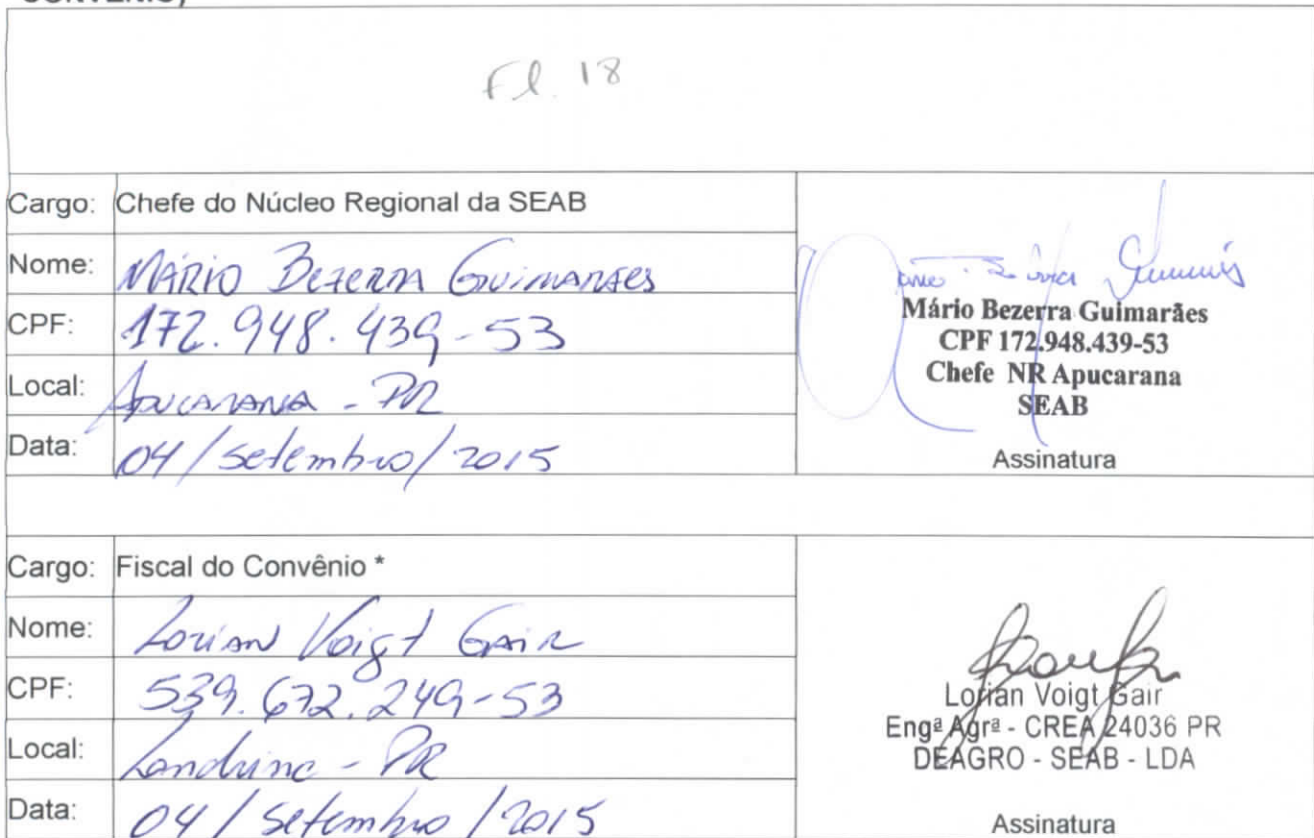 CONVÊNIO)
Fl. 18
Cargo: Chefe do Núcleo Regional da SEAB
Nome: MÁRIO BEZERRA GUIMARÃES
CPF: 172.948.439-53
Local: APUCARANA - PR
Data: 04/setembro/2015
Mário Bezerra Guimarães
CPF 172.948.439-53
Chefe NR Apucarana
SEAB
Assinatura
Cargo: Fiscal do Convênio *
Nome: Lorian Voigt Gair
CPF: 539.672.249-53
Local: Londrina - PR
Data: 04/setembro/2015
Lorian Voigt Gair
Engª Agrª - CREA 24036 PR
DEAGRO - SEAB - LDA
Assinatura